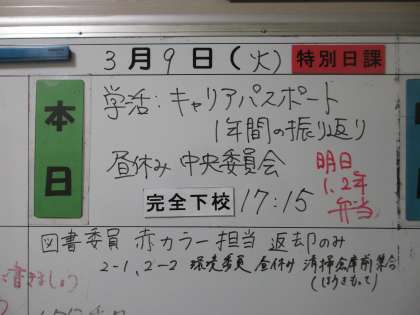 3月9日(火) 特別日課
本日
学活:キャリアパスポート
1年間の振り返り
昼休み 中央委員会
明日
1、2年
弁当
完全下校 17:15
図書委員 赤カラー担当 返却のみ
2-1、2-2 環境委員 昼休み 清掃倉庫前集合
(ほうきもって)
書きましょう